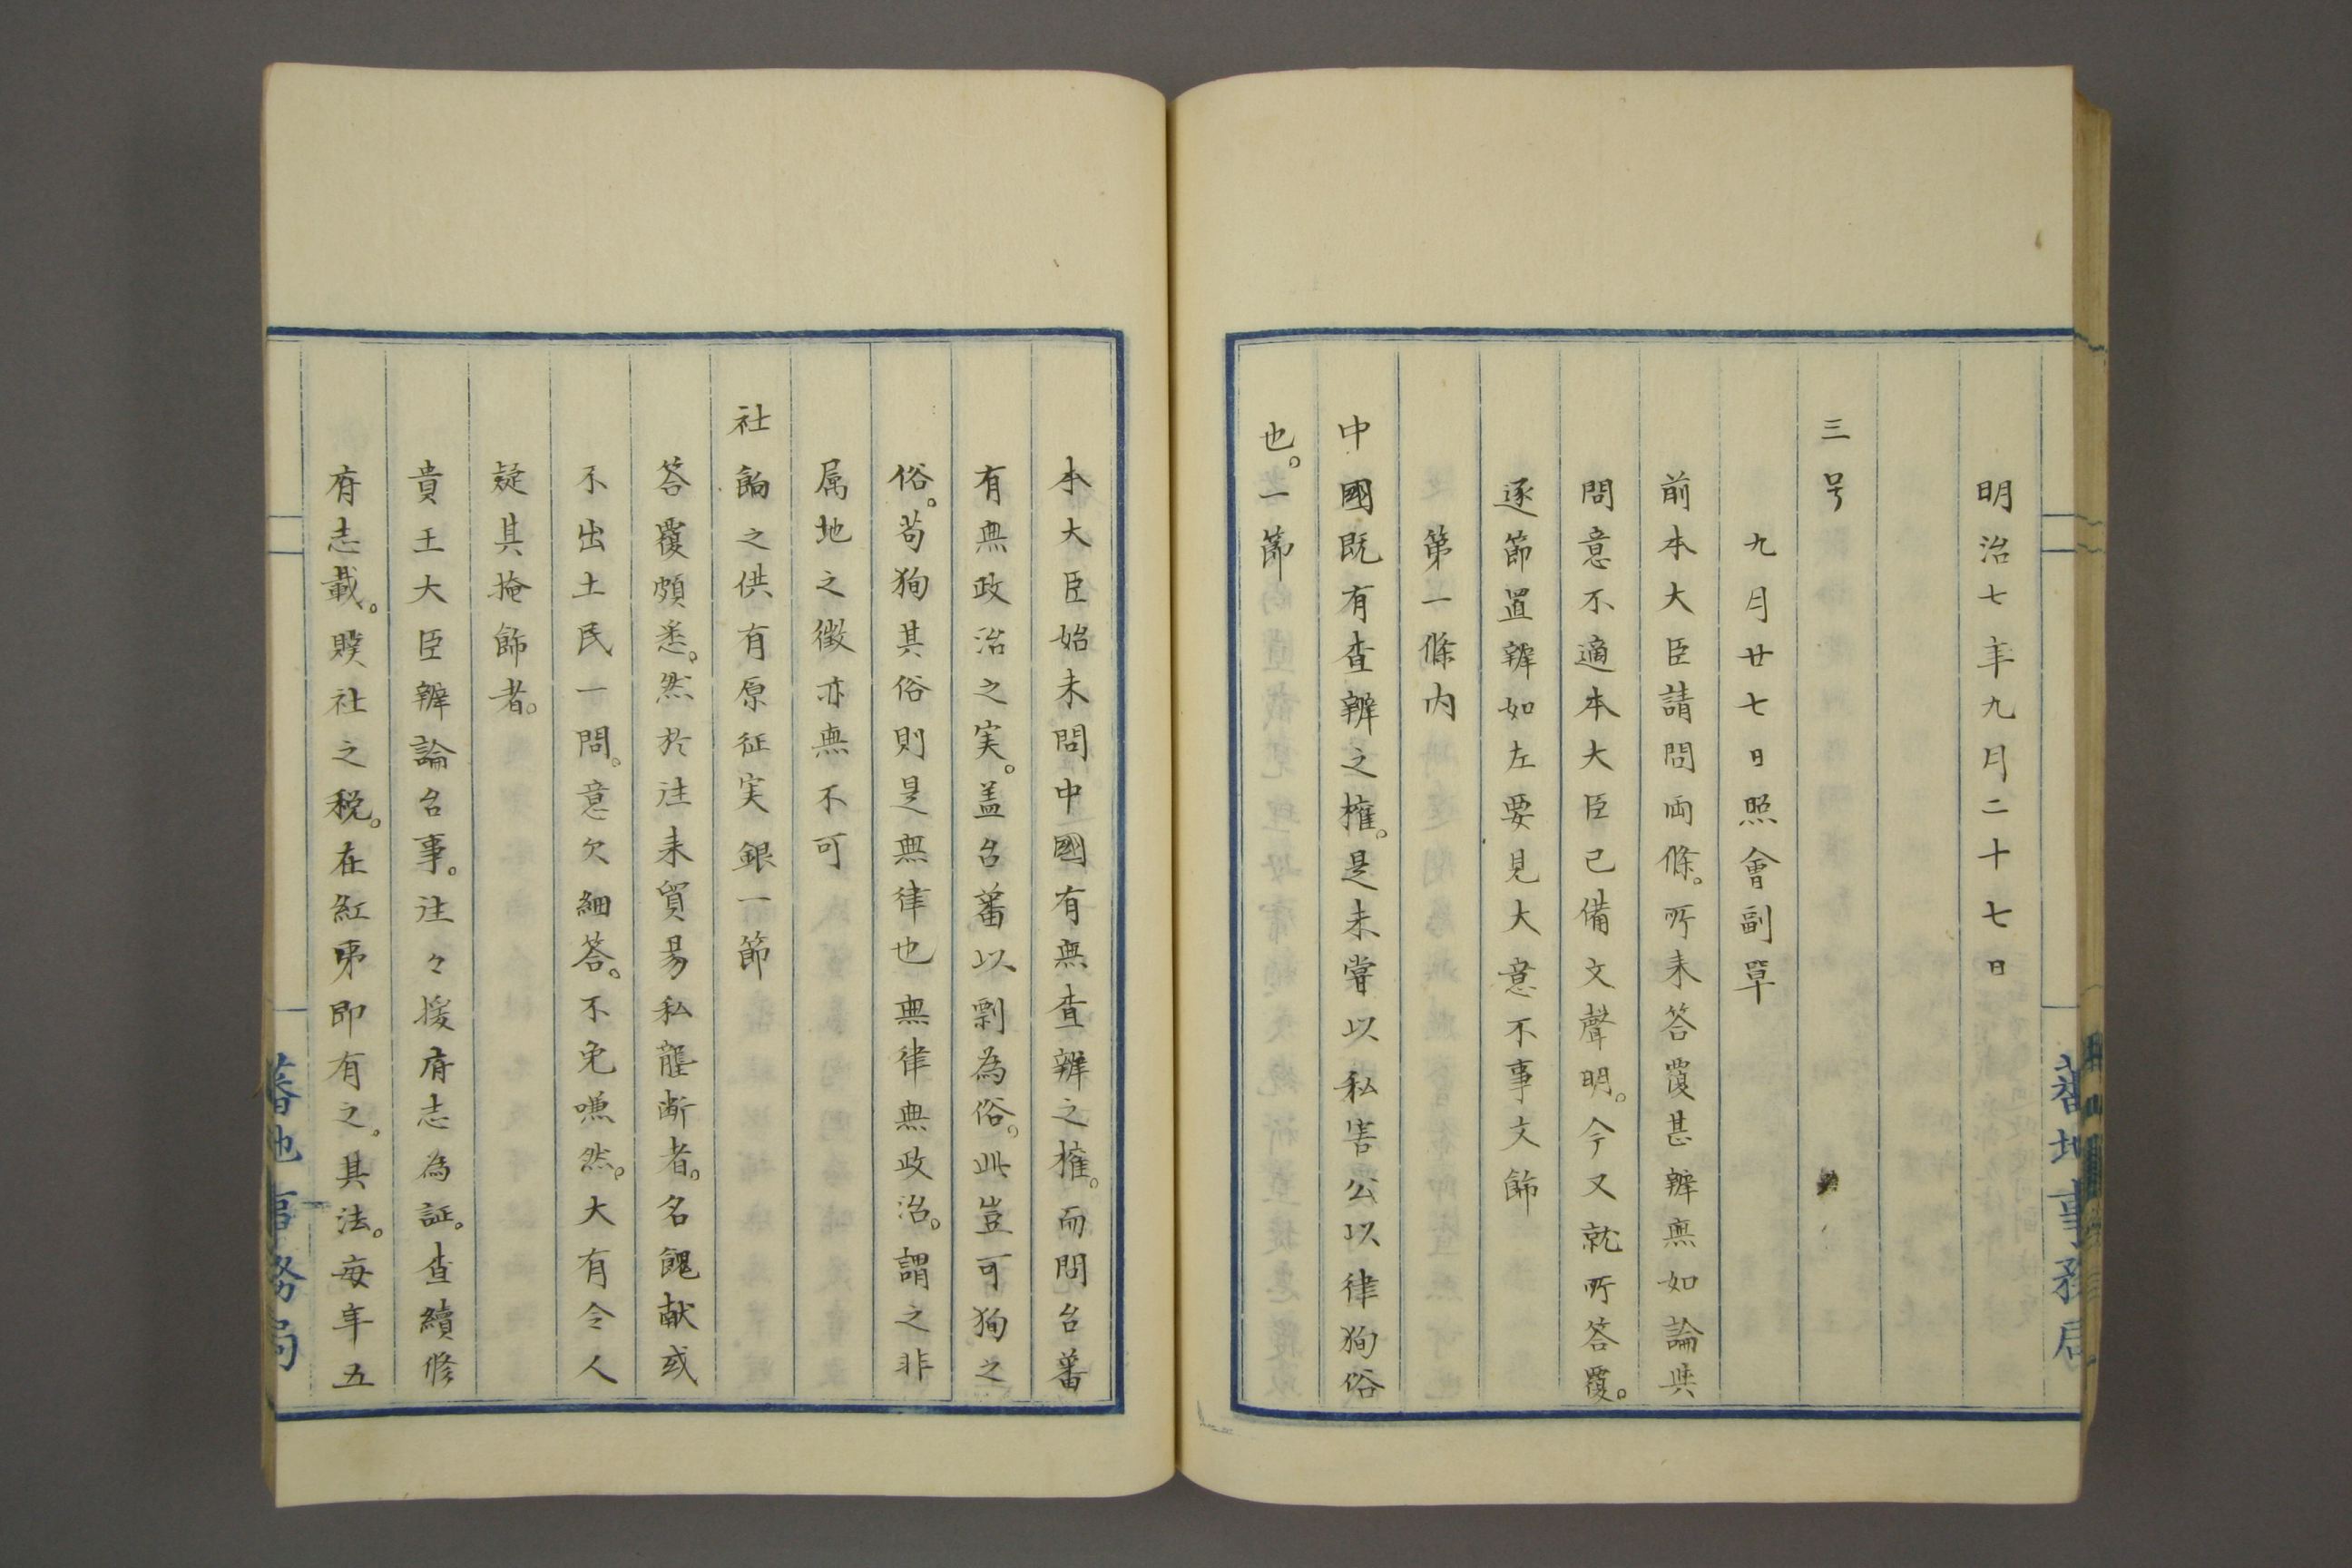 明治七年九月二十七日
三号
九月廿七日照會副単
前本大臣請問両條。所来答覆甚辨無如論與
問意不適本大臣已備文聲明。今又就所答覆。
逐節置辨如左要見大意不事文飾
第一條内
中國既有查辨之權。是未嘗以私害公以律狥俗
也。一節
本大臣始未問中國有無查辨之權。而問台蕃
有無政治之実。盖台蕃以剽為俗。此豈可狥之
俗。苟狥其俗則是無律也無律無政治。謂之非
属地之徴亦無不可
社餉之供有原征実銀一節
答覆頗悉。然於往来貿易私壟断者。名餽献或
不出土民一問。意欠細答。不免嗛然。大有令人
疑其掩飾者。
貴王大臣辨論台事。往々援府志為証。查續修
府志載。贌社之税。在紅夷即有之。其法。每年五
蕃地事務局
蕃地事務局